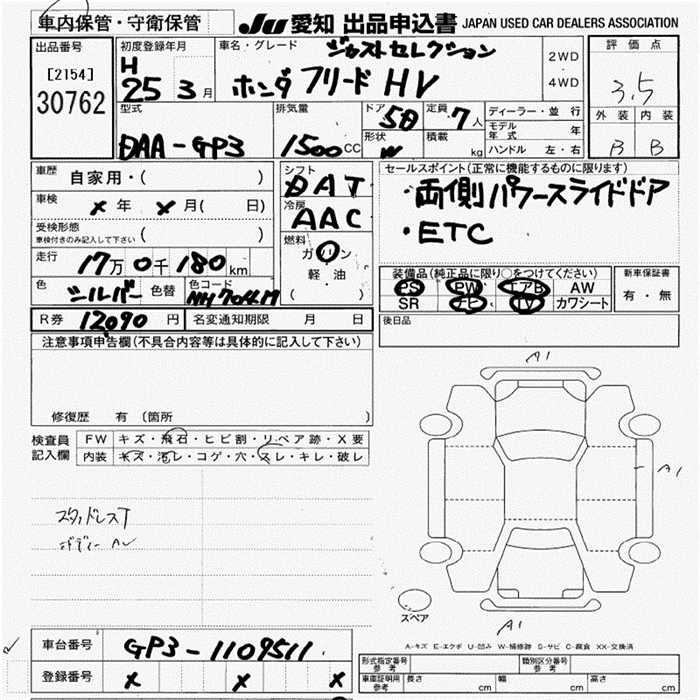 車内保管・守衛保管
JU 愛知 出品申込書 JAPAN USED CAR DEALERS ASSOCIATION
出品番号 初度登録年月 車名・グレード ジャストセレクション 2WD 評価点
[2154] H ・
30762 25 3月 ホンダ フリード HV 4WD 3.5
型式 排気量 ドア 5D 定員 7人 ディーラー・並行 外装 内装
モデル年式 年
DAA-GP3 1500CC 形状 W 積載 kg ハンドル 左・右 B B
車歴 自家用・( ) シフト DAT セールスポイント(正常に機能するものに限ります)
車検 × 年 × 月( 日) 冷房 AAC ・両側パワースライドドア
受検形態 ・ETC
車検付きのみ記入して下さい ( ) 燃料
走行 17万0千180km ガソリン
軽・油
( )
装備品(純正品に限り○をつけてください) 新車保証書
色 シルバー 色替 色コード NH704M PS PW エアB AW 有・無
SR ナビ TV カワシート
R券 12,090 円 名変通知期限 月 日 後日品
注意事項申告欄(不具合内容等は具体的に記入して下さい)
修復歴 有 (箇所
検査員記入欄 FW キズ・飛石・ヒビ割・リペア跡・X要
内装 キズ・汚レ・コゲ・穴・スレ・キレ・破レ
A1
A1
スタッドレスT
スペア
A1
A-キズ E-エクボ U-凹み W-補修跡 S-サビ C-腐食 XX-交換済
車台番号 GP3-1109511
登録番号 × × ×
形式指定番号 参考 類別区分番号 参考
車庫証明用 参考 長さ cm 幅 cm 高さ cm